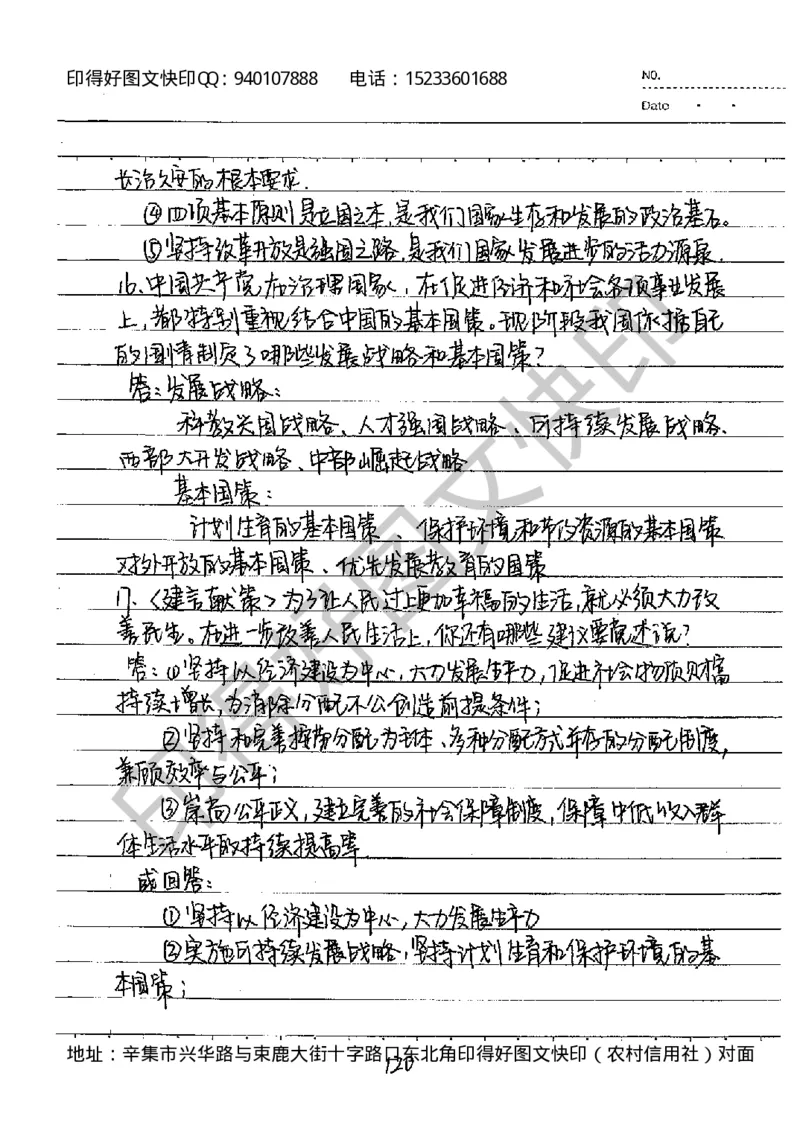 印得好图文快印QQ：940107888 电话：15233601688
NO.
Date
长治久安的根本要求.
④四项基本原则是立国之本,是我们国家生存和发展的政治基石。
⑤坚持改革开放是强国之路,是我们国家发展进步的活力源泉.
16、中国共产党在治理国家，在促进经济和社会各项事业发展
上，都特别重视结合中国的基本国策。现阶段我国依据自己
的国情制定了哪些发展战略和基本国策？
答：发展战略：
科教兴国战略、人才强国战略、可持续发展战略、
西部大开发战略、中部崛起战略
基本国策：
计划生育的基本国策、保护环境和节约资源的基本国策
对外开放的基本国策、优先发展教育的国策
17、〈建言献策〉为了让人民过上更加幸福的生活,就必须大力改
善民生。在进一步改善人民生活上,你还有哪些建议要陈述说？
答：①坚持以经济建设为中心,大力发展生产力,促进社会物质财富
持续增长,为消除分配不公创造前提条件；
②坚持和完善按劳分配为主体、多种分配方式并存的分配制度,
兼顾效率与公平；
③崇尚公平正义,建立完善的社会保障制度,保障中低收入群
体生活水平的持续提高等
或回答：
①坚持以经济建设为中心,大力发展生产力
②实施可持续发展战略,坚持计划生育和保护环境的基
本国策；
地址：辛集市兴华路与束鹿大街十字路口东北角印得好图文快印（农村信用社）对面
120
印得好图文快印